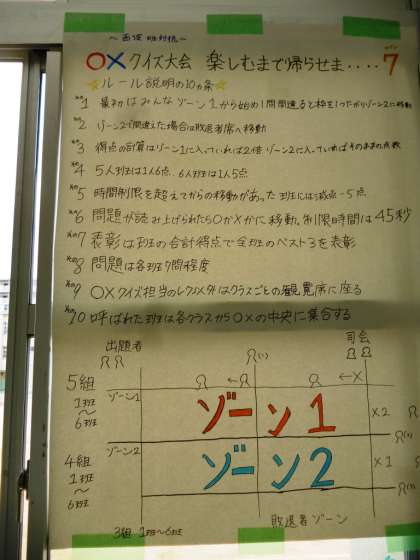 〜面従 班対抗〜
〇×クイズ大会 楽しむまで帰らせま‥‥7
☆ルール説明の10ヵ条☆
その1 最初はみんなゾーン1から始め1問間違えると枠を1つ下がりゾーン2に移動
その2 ゾーン2で間違えた場合は敗退者席へ移動
その3 得点の計算はゾーン1に入っていれば2倍 ゾーン2に入っていればそのままの点数
その4 5人班は1人6点、6人班は1人5点
その5 時間制限を超えてからの移動があった班には減点-5点
その6 問題が読み上げられたら〇か×かに移動。制限時間は45秒
その7 表彰は班の合計得点で全班のベスト3を表彰
その8 問題は各班7問程度
その9 〇×クイズ担当のレク係以外はクラスごとの観覧席に座る
その10 呼ばれた班は各クラスから〇×の中央に集合する
出題者
司会
5組
1班
〜
6班
ゾーン1
ゾーン1
×2
4組
1班
〜
6班
ゾーン2
ゾーン2
×1
敗退者ゾーン
3組 1班〜6班